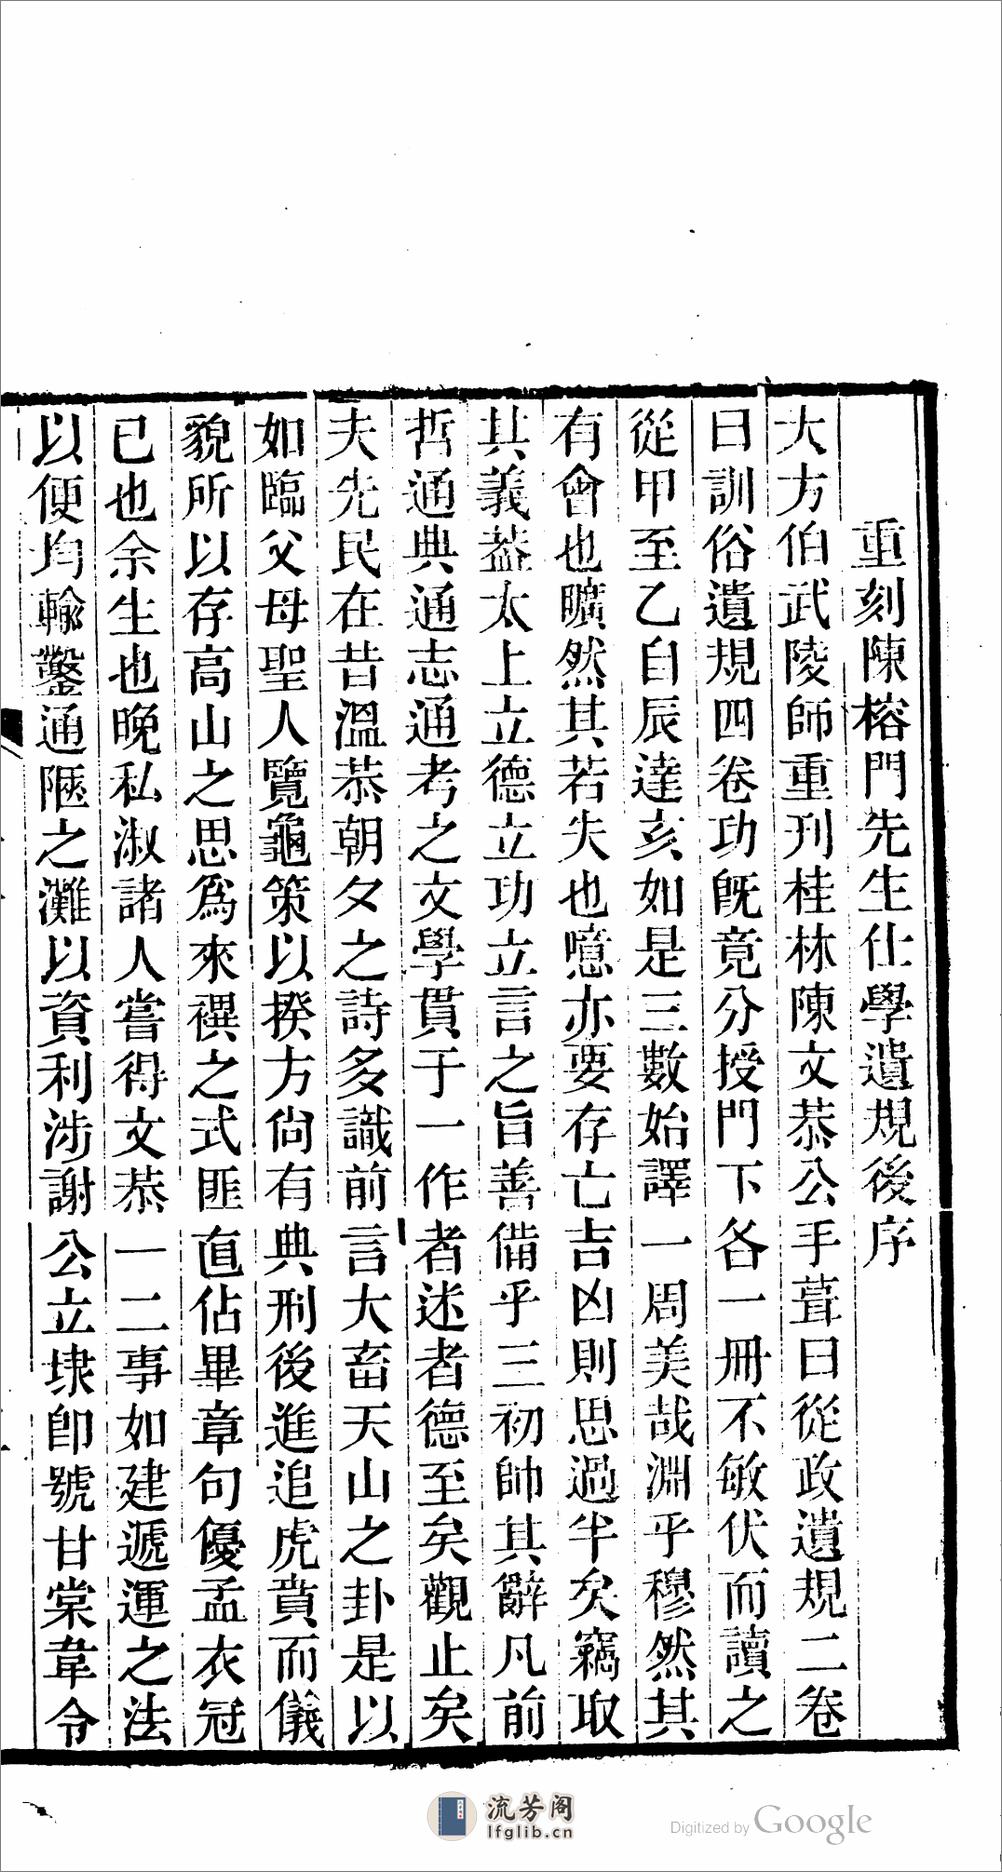 重刻陳榕門先生仕學遺規後序
大方伯武陵師重刊桂林陳文恭公手葺曰從政遺規二卷
曰訓俗遺規四卷功旣竟分授門下各一冊不敏伏而讀之
從甲至乙自辰達亥如是三數始譯一周美哉淵乎穆然其
有會也曠然其若失也噫亦要存亡吉凶則思過半矣竊取
其義葢太上立德立功立言之旨善備乎三初帥其辭凡前
哲通典通志通考之文學貫于一作者述者德至矣觀止矣
夫先民在昔溫恭朝夕之詩多識前言大畜天山之卦是以
如臨父母聖人覽龜策以揆方尙有典刑後進追虎賁而儀
貌所以存高山之思爲來禩之式匪直佔畢章句優孟衣冠
已也余生也晚私淑諸人嘗得文恭一二事如建遞運之法
以便均輸鑿通陿之灘以資利涉謝公立埭卽號甘棠韋令
流芳阁
lfglib.cn
Digitized by Google